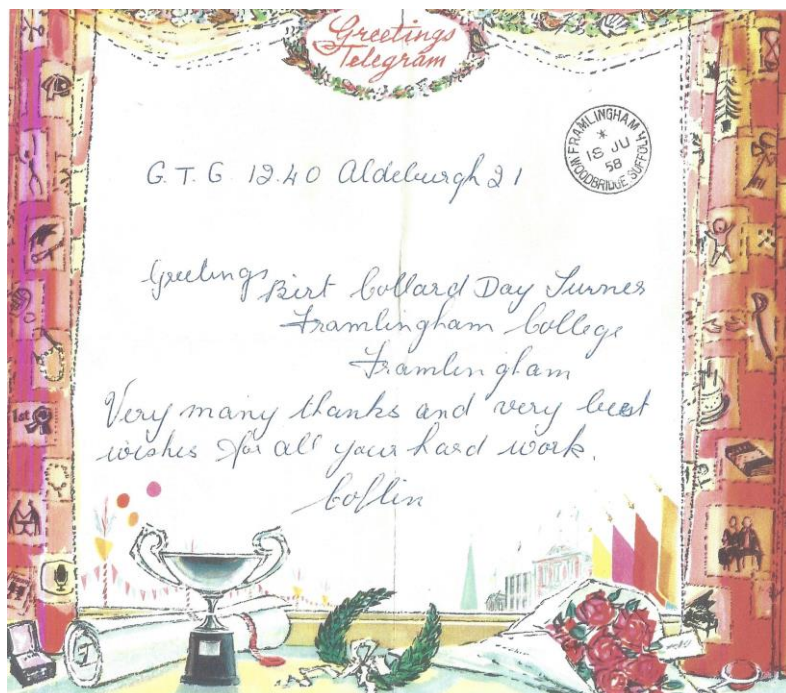 Greetings
Telegram
FRAMLINGHAM
WOODBRIDGE SUFFOLK
*
18 JU
58
G.T.G. 12.40 Aldeburgh 21
Greetings Birt Collard Day Turner
Framlingham College
Framlingham
Very many thanks and very best
wishes for all your hard work.
1st